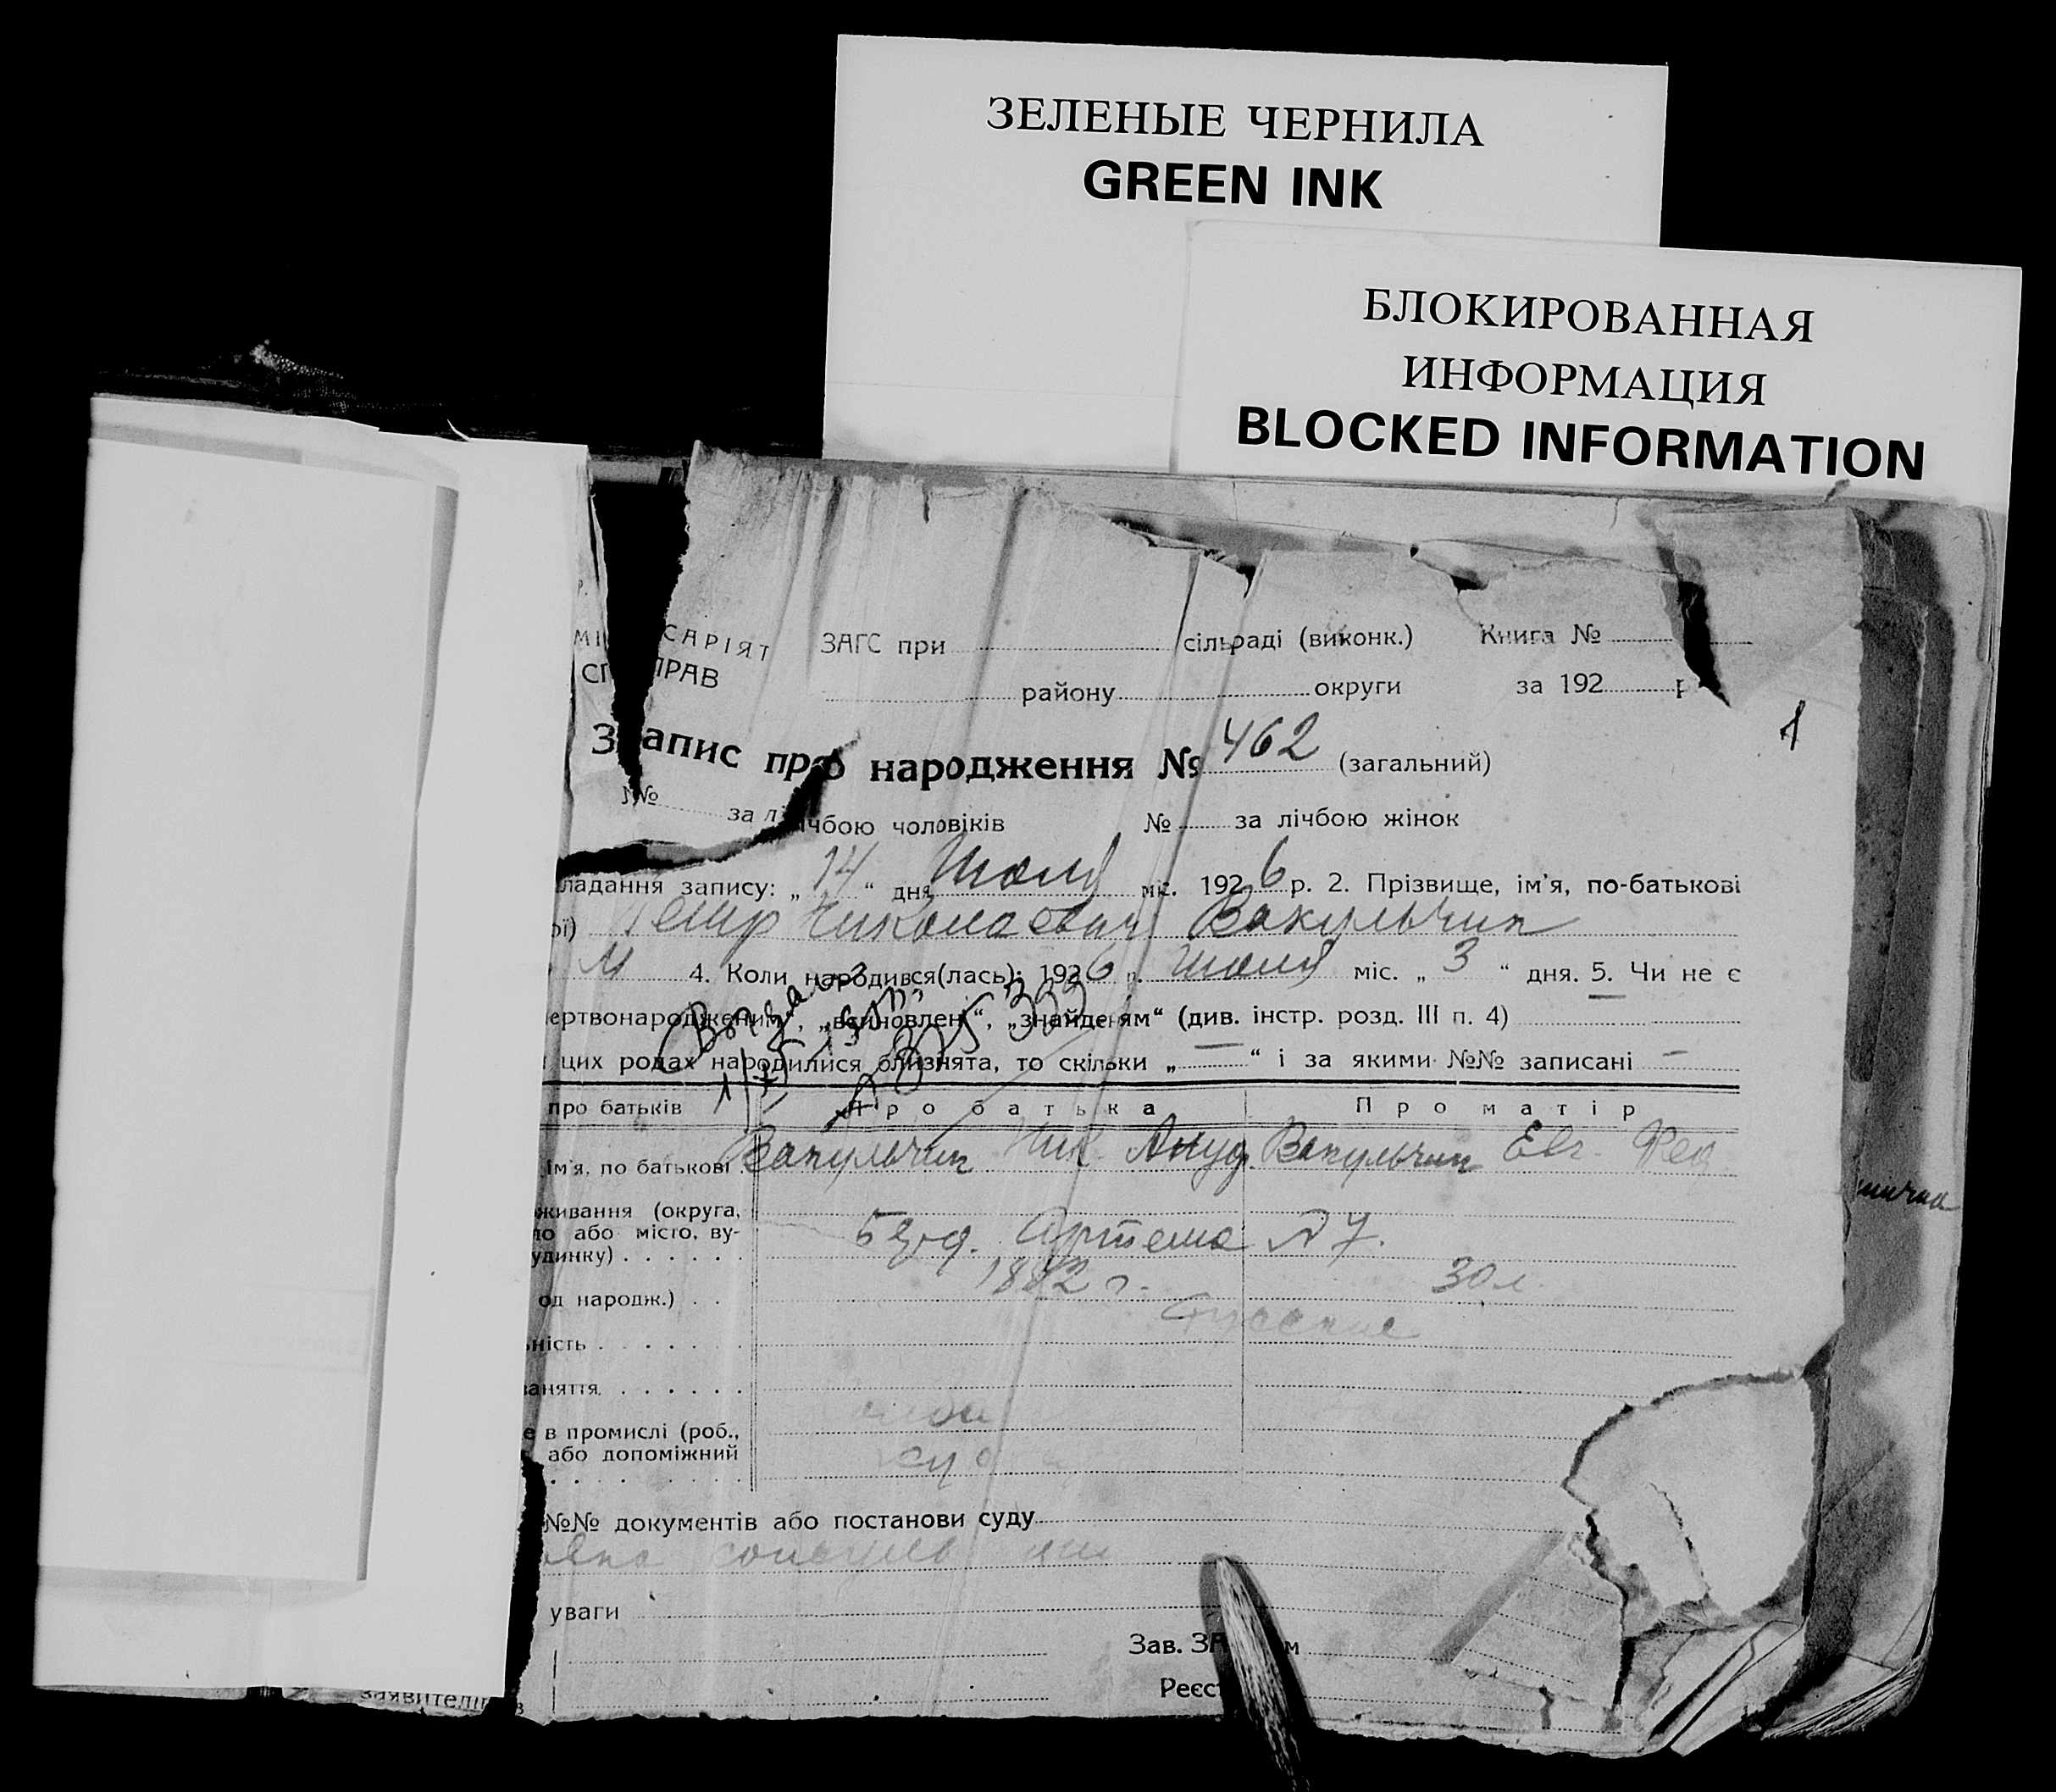 ЗЕЛЕНЫЕ ЧЕРНИЛА
GREEN INK
БЛОКИРОВАННАЯ
ИНФОРМАЦИЯ
BLOCKED INFORMATION
САРІЯТ ЗАГС при сільраді (виконк.) Книга №
ПРАВ району округи за 192 р
Запис про народження № 462 (загальний)
1
№ за лічбою чоловіків № за лічбою жінок
ладання запису: „ 14 “ дня Июля міс. 1926 р. 2. Прізвище, ім’я, по-батькові
ої) Петр Николаевич Вакульчик
М 4. Коли народився(лась): 1926 р. июля міс. „ 3 “ дня. 5. Чи не є
ертвонародженим“, „всиновлені“, „знайденям“ (див. інстр. розд. III п. 4)
цих родах народилися близнята, то скільки „ — “ і за якими №№ записані —
про батьків Про батька Про матір
ім’я, по батькові Вакульчик Ник. Вакульчик Евг.
живання (округа,
о або місто, ву-
удинку) Артема № 7.
од народж.) 1882 г. 30 л.
ність
аняття
е в промислі (роб.,
або допоміжний
№№ документів або постанови суду
уваги
Зав. ЗА м
Реєст
заявителів